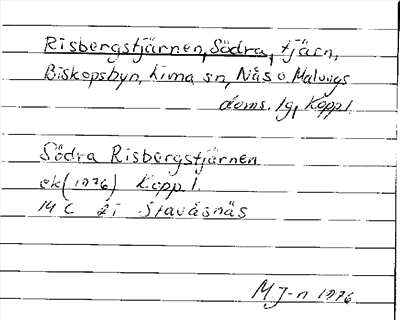 Risbergstjärnen, Södra, tjärn,
Biskopsbyn, Lima sn, Nås o Malungs
doms. lg, Kopp l.
Södra Risbergstjärnen
ek (1976) Kopp l.
14 C 2i Stavåsnäs
M. J-n 1976